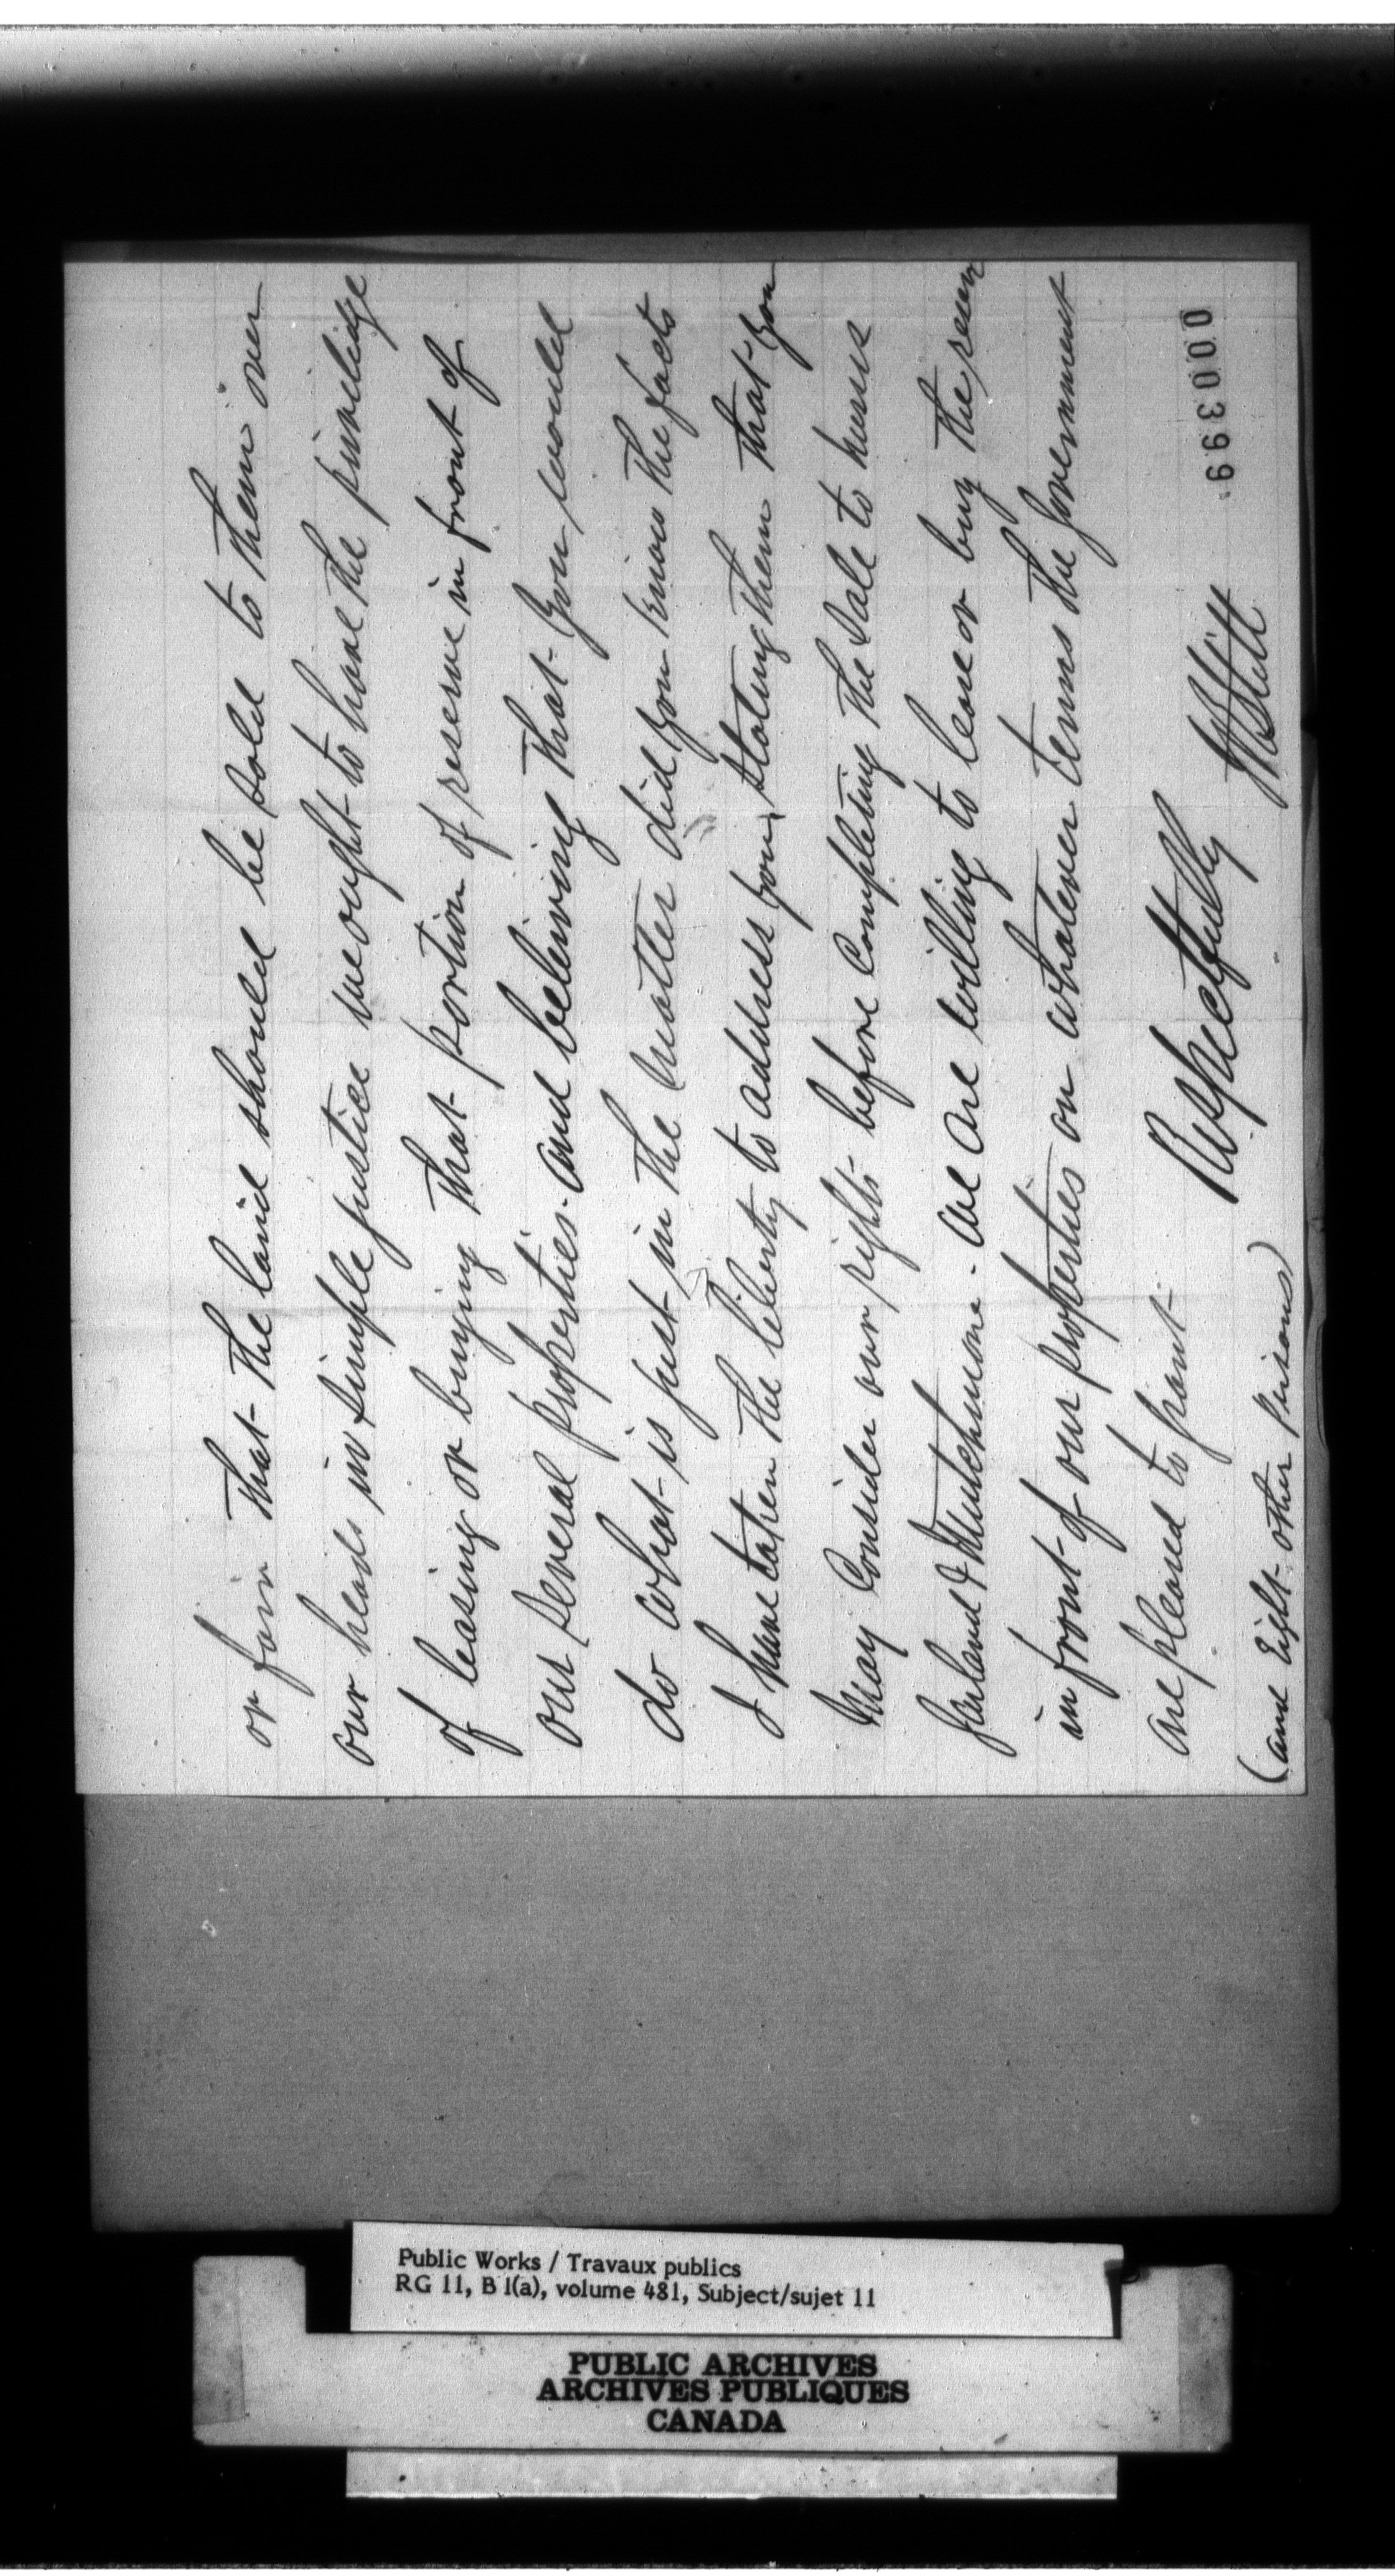 or fair that the land should be sold to them over
our heads in simple justice we ought to have the priviledge
of leasing or buying that portion of reserve in front of
our several properties. and believing that you would
do what is just in the matter did you know the facts
I have taken the liberty to address you, stating them that you
may consider our rights before completing the sale to
Garland & Mutchmore. We are willing to lease or buy the
in front of our properties on whatever terms the Government
are pleased to grant
Respectfully
(and Eight other persons)
000399
Public Works / Travaux publics
RG 11, B 1(a), volume 481, Subject/sujet 11
PUBLIC ARCHIVES
ARCHIVES PUBLIQUES
CANADA